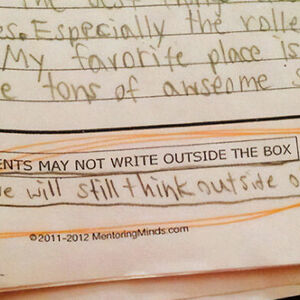 es. Especially the rolle
My favorite place is
e tons of awseome s
ENTS MAY NOT WRITE OUTSIDE THE BOX
e will still think outside o
©2011-2012 MentoringMinds.com